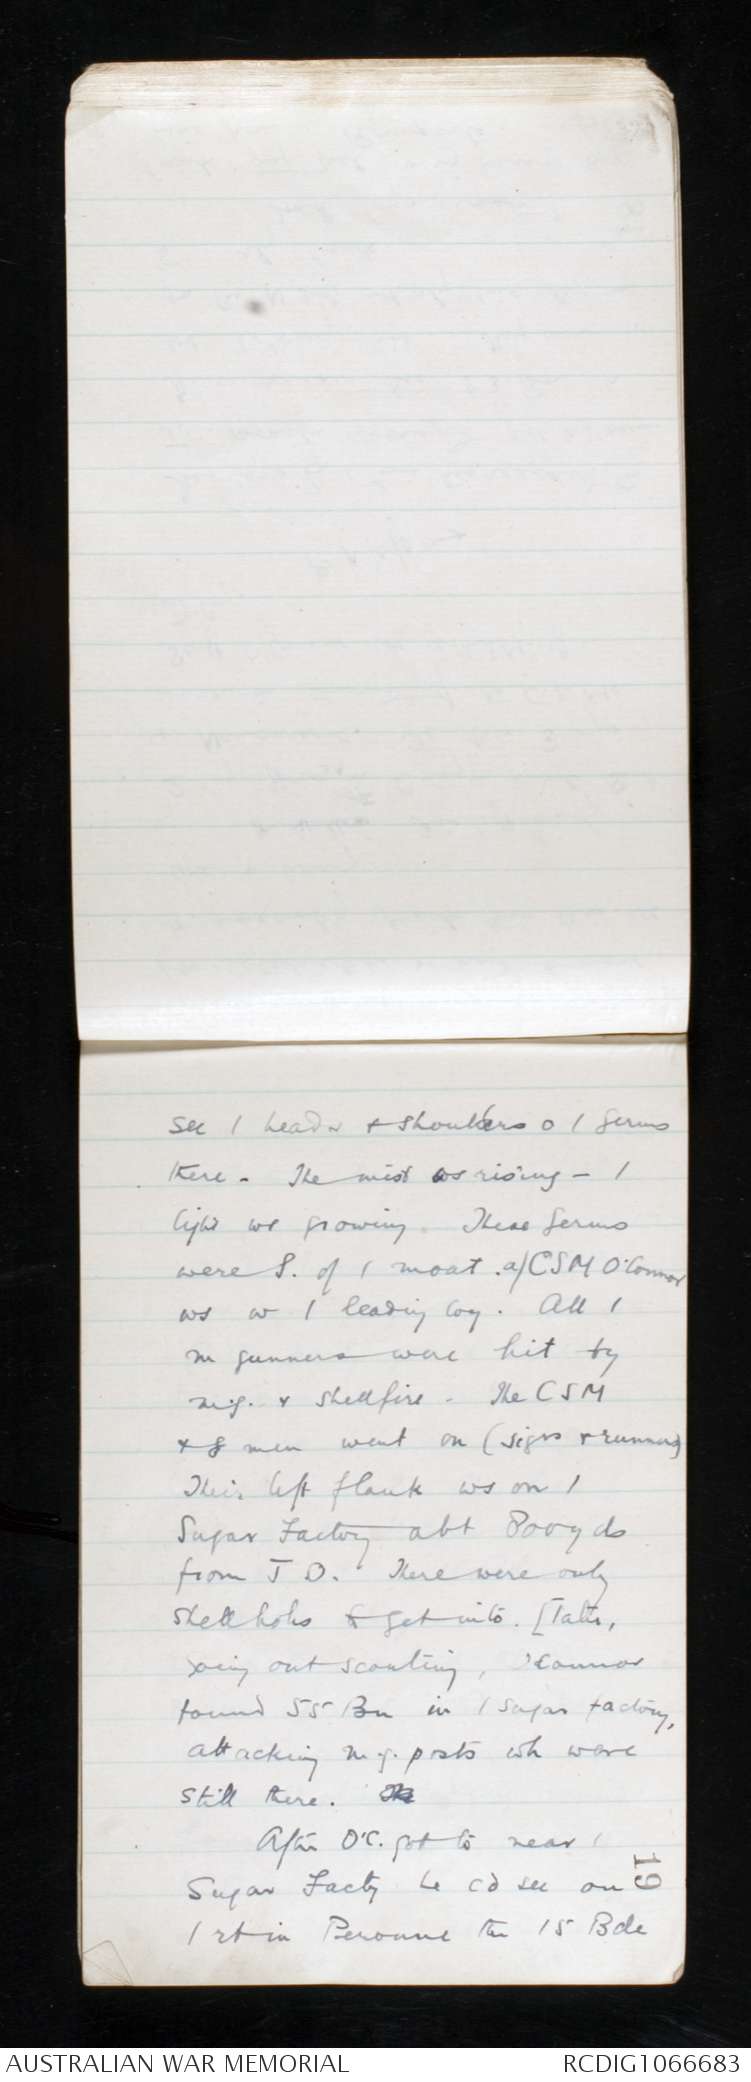 see / heads & shoulders o / Germs
there. The mist ws rising - /
light ws growing. These Germs
were S. of / moat. a/CSM O'Connor
ws w / leading Coy. All /
m gunners were hit by
m.g. & shellfire. The CSM
& 8 men went on (sigrs & runners)
Their left flank ws on /
Sugar Factory abt 800 yds
from J D. There were only
shell holes to get into. [Later,
going out scouting, O'Connor
found 55 Bn in / sugar factory,
attacking m.g. posts wh were
still there.
After O'C. got to near /
Sugar Facty he cd see on
/ rt in Peronne the 15 Bde
19
AUSTRALIAN WAR MEMORIAL
RCDIG1066683